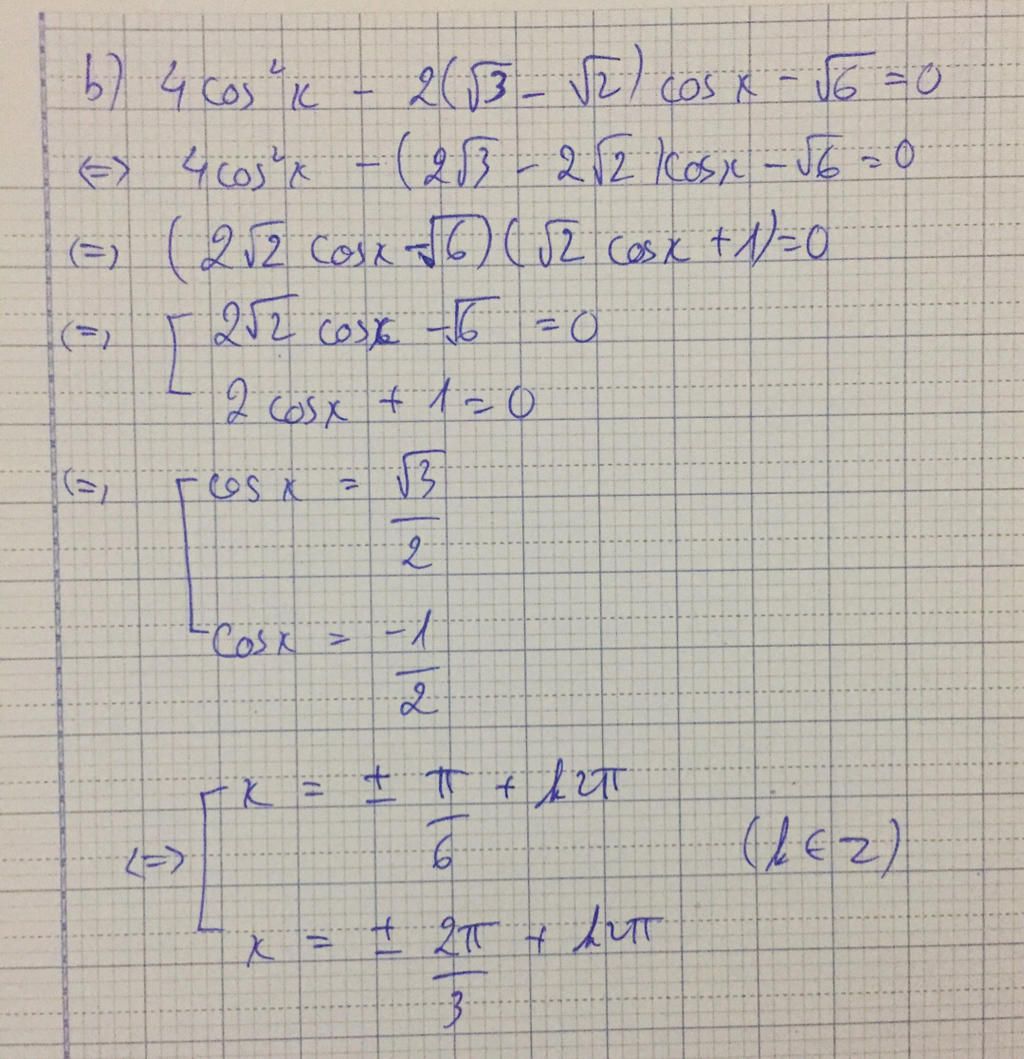 b) 4cos²x - 2(√3 - √2) cosx - √6 = 0
<=> 4cos²x - (2√3 - 2√2)cosx - √6 = 0
(=) (2√2 cosx - √6)(√2 cosx + 1) = 0
(=) [ 2√2 cosx - √6 = 0
2cosx + 1 = 0
(=) [ cosx = √3/2
cosx = -1/2
<=> [ x = ± π/6 + k2π
(k ∈ Z)
x = ± 2π/3 + k2π